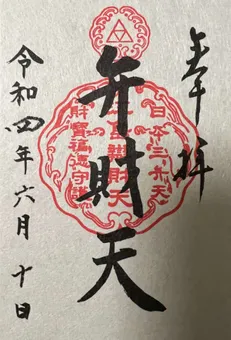 奉拝
弁財天
日本三弁天
辯財天
財寶福徳守護
令和四年六月十日